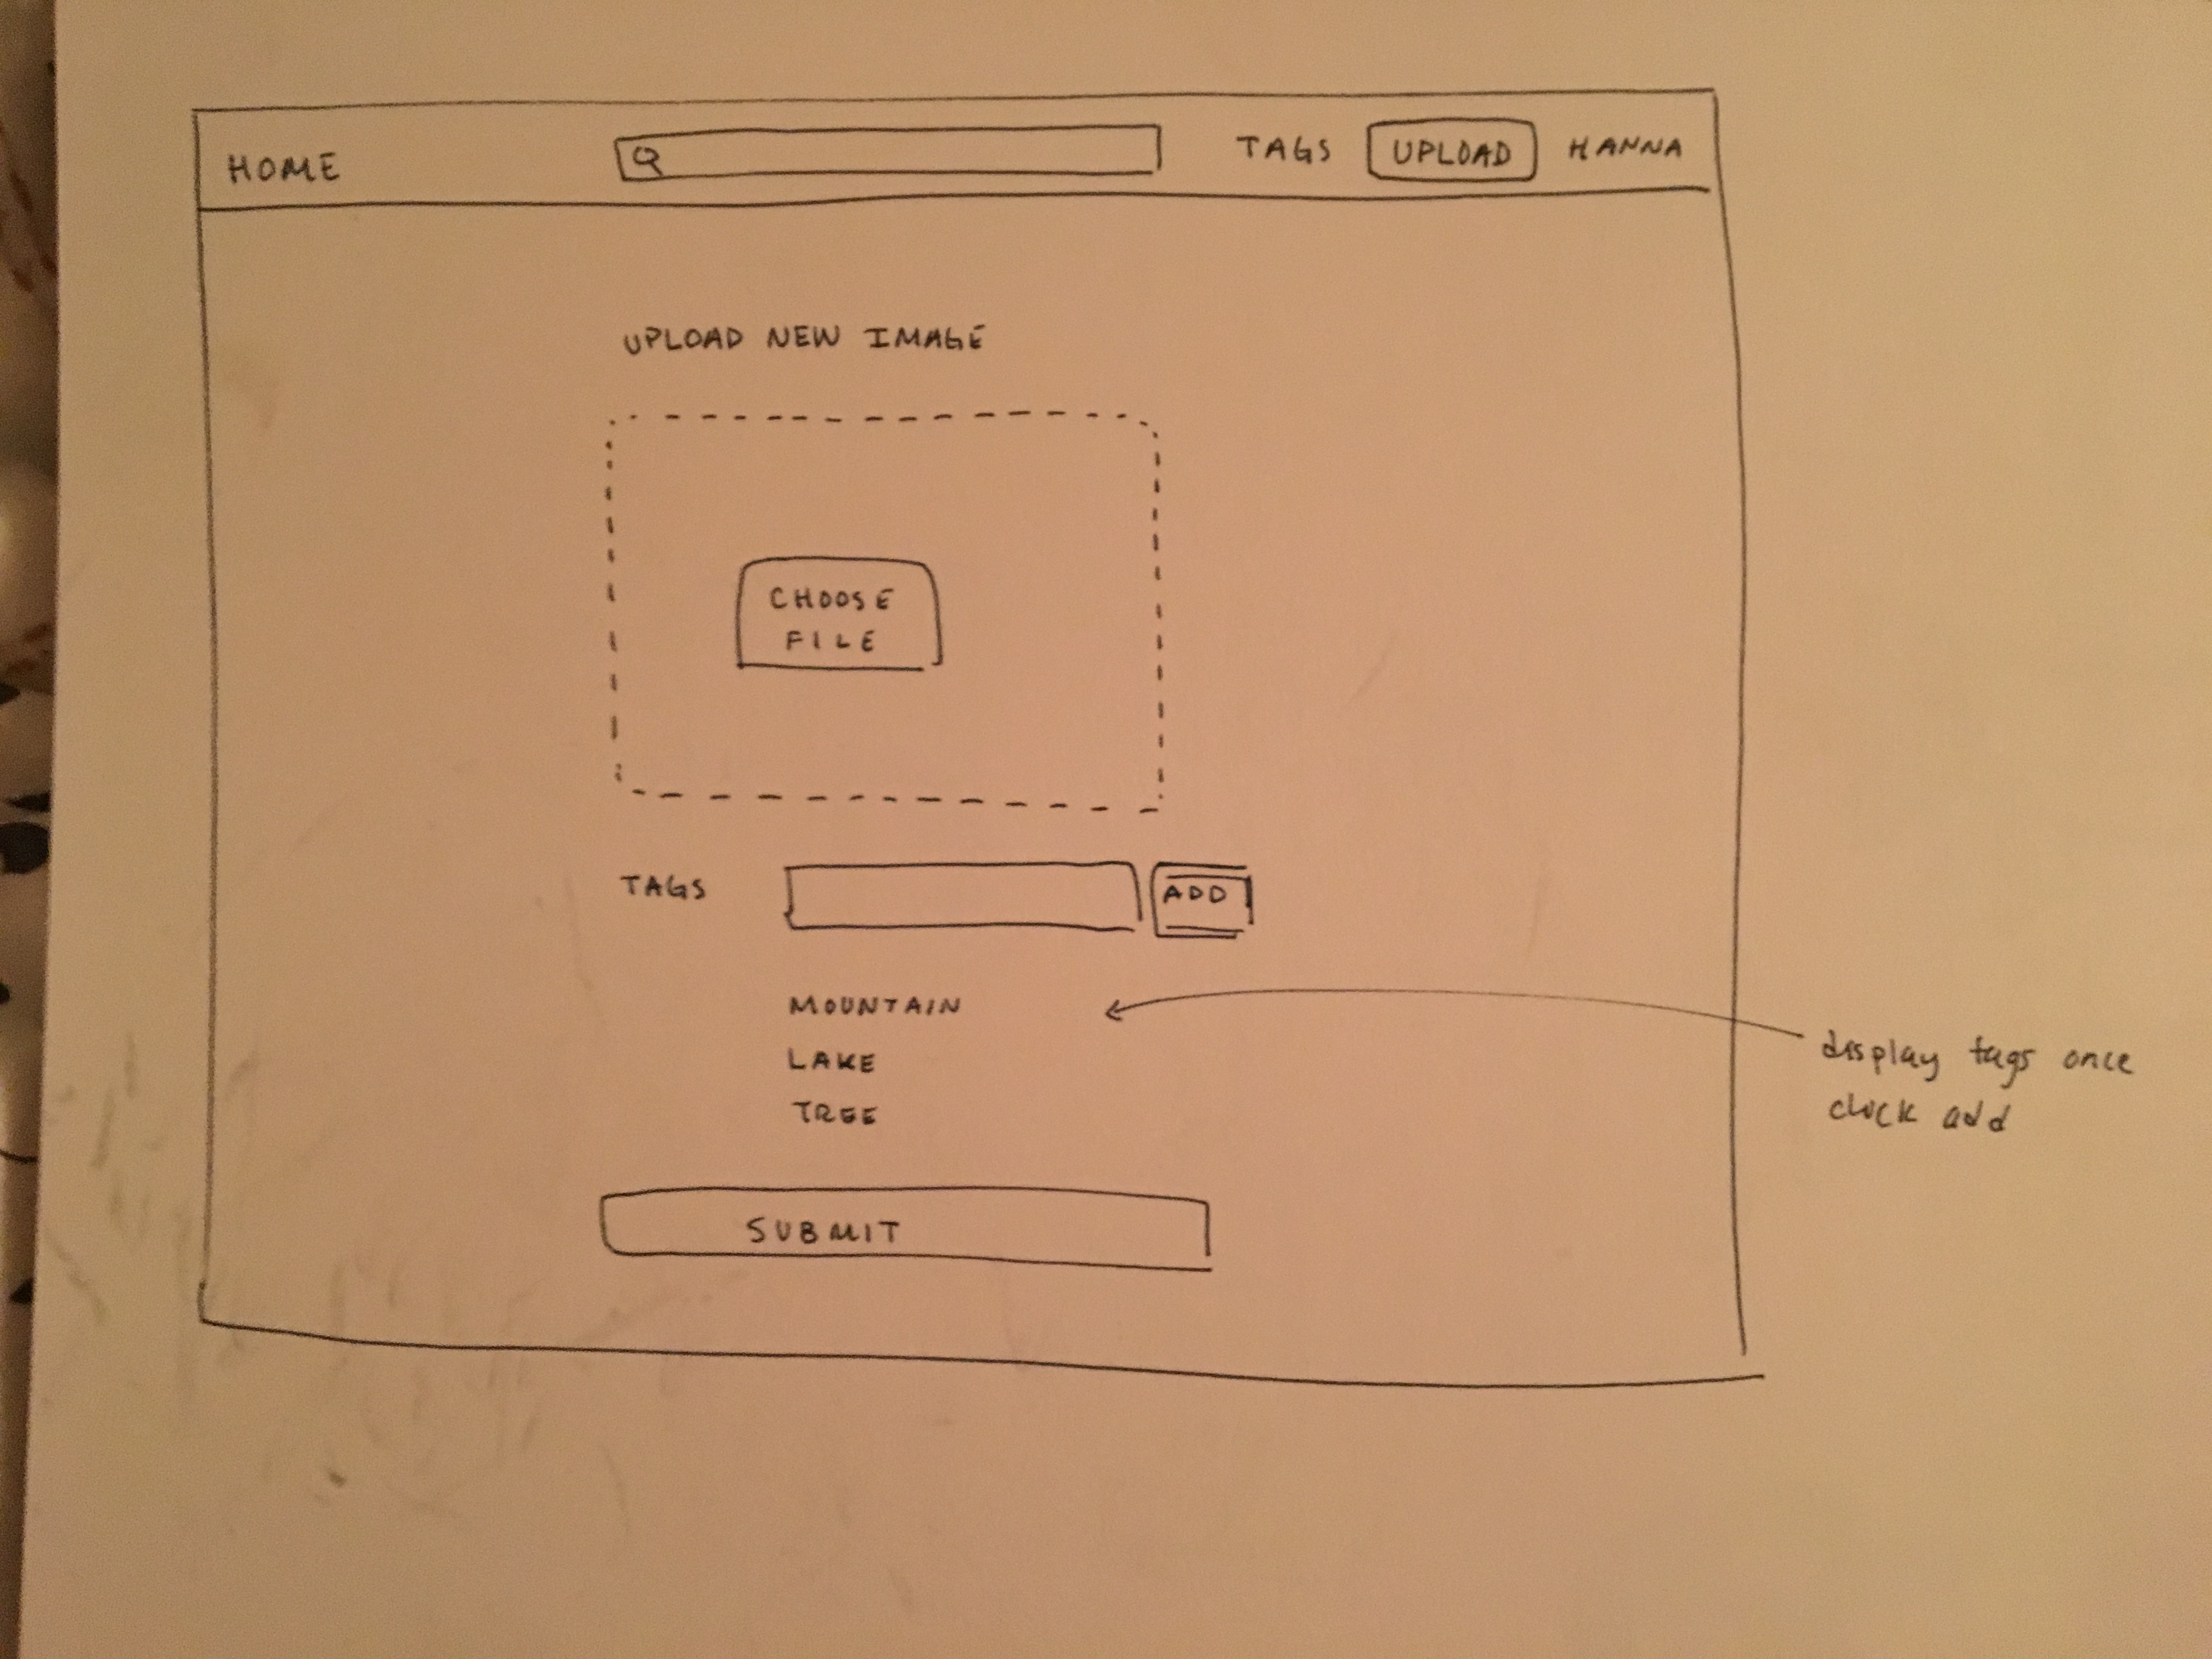 HOME TAGS UPLOAD HANNA
UPLOAD NEW IMAGE
CHOOSE
FILE
TAGS ADD
MOUNTAIN
LAKE
TREE
display tags once
click add
SUBMIT